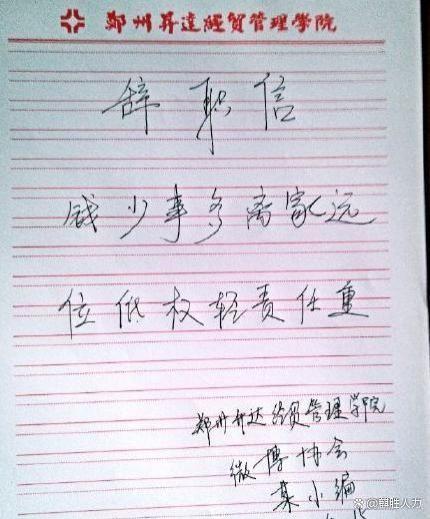 郑州昇達經贸管理學院
辞职信
钱少事多离家远
位低权轻责任重
郑州升达经贸管理学院
微博协会
某小编
@翱胜人力